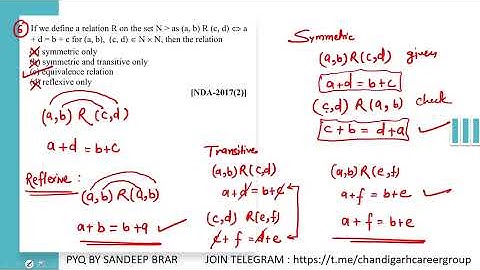 6 If we define a relation R on the set N > as (a, b) R (c, d) ⇔ a
+ d = b + c for (a, b), (c, d) ∈ N × N, then the relation
(a) symmetric only
(b) symmetric and transitive only
(c) equivalence relation
(d) reflexive only
[NDA-2017(2)]
(a,b) R (c,d)
a+d = b+c
Reflexive :
(a,b) R (a,b)
a+b = b+a ✓
Symmetric
(a,b) R (c,d) gives
a+d = b+c
(c,d) R (a,b) check
c+b = d+a ✓
Transitive
(a,b) R (c,d)
a+d = b+c
(c,d) R (e,f)
c+f = d+e
(a,b) R (e,f)
a+f = b+e ✓
a+f = b+e
PYQ BY SANDEEP BRAR JOIN TELEGRAM : https://t.me/chandigarhcareergroup